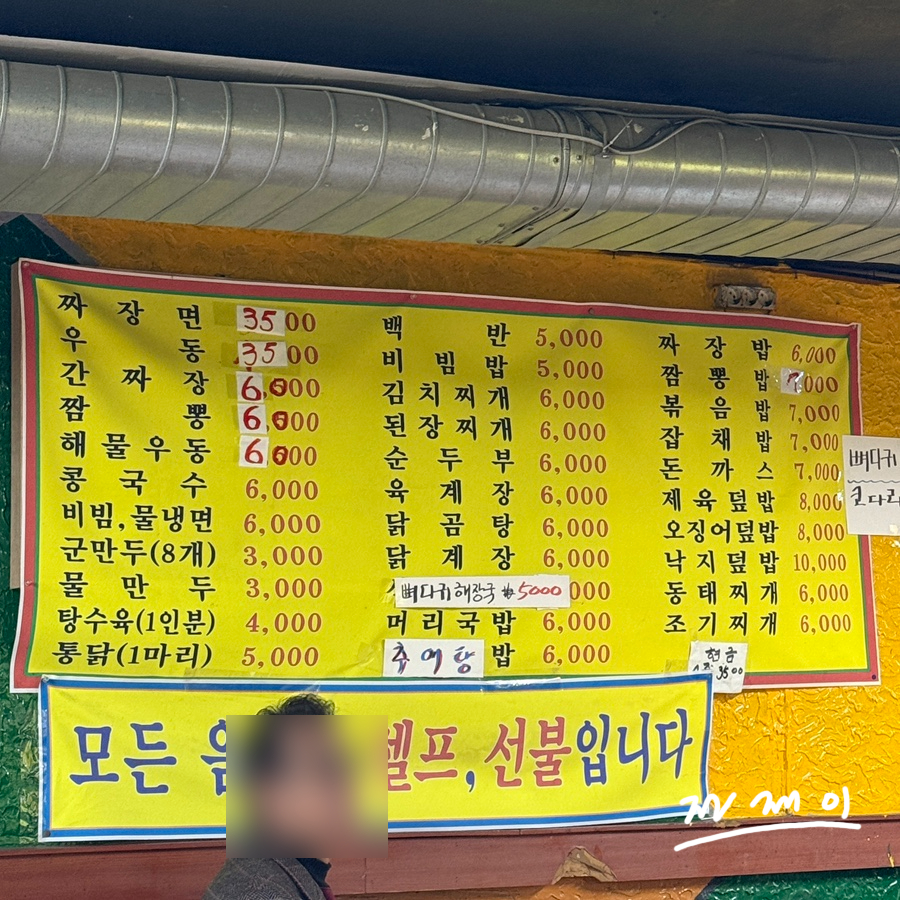 짜장면 3500
우동 3500
간짜장 6,000
짬뽕 6,000
해물우동 6000
콩국수 6,000
비빔,물냉면 6,000
군만두(8개) 3,000
물만두 3,000
탕수육(1인분) 4,000
통닭(1마리) 5,000
백반 5,000
비빔밥 5,000
김치찌개 6,000
된장찌개 6,000
순두부 6,000
육계장 6,000
닭곰탕 6,000
닭계장 6,000
뼈다귀해장국 ₩5000
머리국밥 6,000
추어탕 밥 6,000
짜장밥 6,000
짬뽕밥 7,000
볶음밥 7,000
잡채밥 7,000
돈까스 7,000
제육덮밥 8,000
오징어덮밥 8,000
낙지덮밥 10,000
동태찌개 6,000
조기찌개 6,000
현금
3500
뼈다귀
코다리
모든 음 셀프, 선불입니다